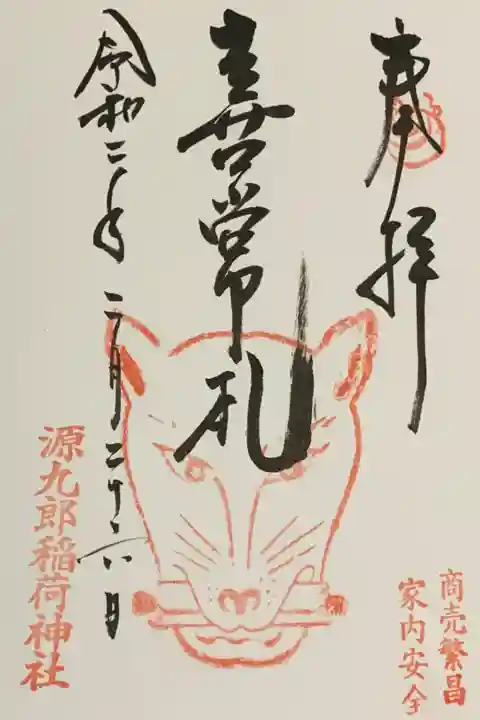 奉拝
喜常札
令和二年二月二十六日
商売繁昌
家内安全
源九郎稲荷神社